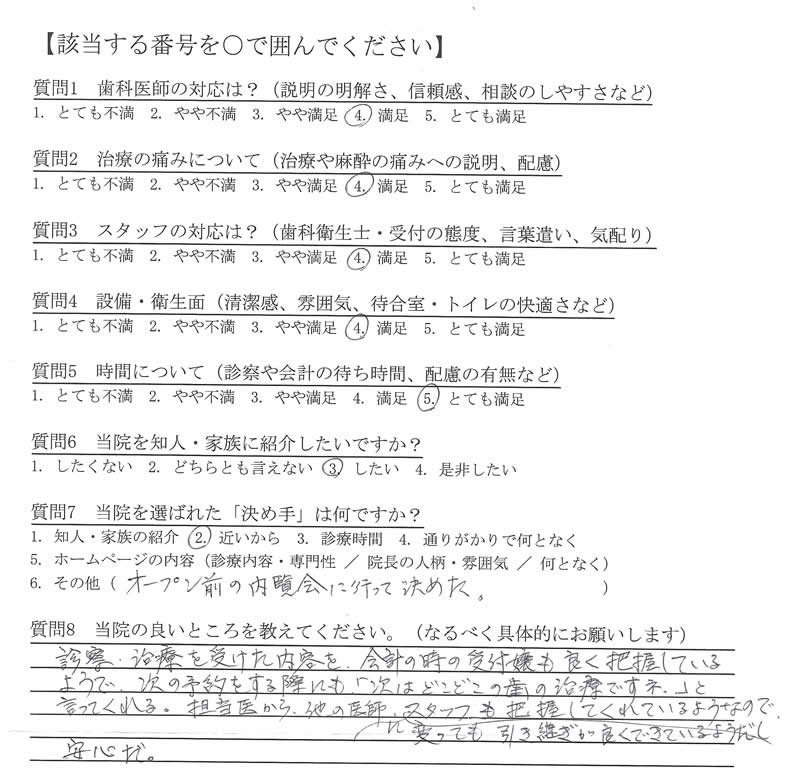 【該当する番号を○で囲んでください】
質問1 歯科医師の対応は？（説明の明解さ、信頼感、相談のしやすさなど）
1. とても不満 2. やや不満 3. やや満足 4. 満足 5. とても満足
質問2 治療の痛みについて（治療や麻酔の痛みへの説明、配慮）
1. とても不満 2. やや不満 3. やや満足 4. 満足 5. とても満足
質問3 スタッフの対応は？（歯科衛生士・受付の態度、言葉遣い、気配り）
1. とても不満 2. やや不満 3. やや満足 4. 満足 5. とても満足
質問4 設備・衛生面（清潔感、雰囲気、待合室・トイレの快適さなど）
1. とても不満 2. やや不満 3. やや満足 4. 満足 5. とても満足
質問5 時間について（診察や会計の待ち時間、配慮の有無など）
1. とても不満 2. やや不満 3. やや満足 4. 満足 5. とても満足
質問6 当院を知人・家族に紹介したいですか？
1. したくない 2. どちらとも言えない 3. したい 4. 是非したい
質問7 当院を選ばれた「決め手」は何ですか？
1. 知人・家族の紹介 2. 近いから 3. 診療時間 4. 通りがかりで何となく
5. ホームページの内容（診療内容・専門性 ／ 院長の人柄・雰囲気 ／ 何となく）
6. その他（オープン前の内覧会に行って決めた。）
質問8 当院の良いところを教えてください。（なるべく具体的にお願いします）
診察、治療を受けた内容を、会計の時の受付嬢も良く把握している
ようで、次の予約をする際にも「次はどこどこの歯の治療ですネ。」と
言ってくれる。担当医から、他の医師、スタッフも把握してくれているようなので、
に変っても引き継ぎが良くできているようだし
安心だ。